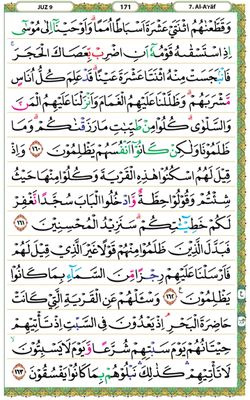 JUZ 9 171 7. Al-A'rāf
وَقَطَّعْنَاهُمُ اثْنَتَيْ عَشْرَةَ أَسْبَاطًا أُمَمًا ۚ وَأَوْحَيْنَا إِلَىٰ مُوسَىٰ
إِذِ اسْتَسْقَاهُ قَوْمُهُ أَنِ اضْرِب بِّعَصَاكَ الْحَجَرَ ۖ
فَانبَجَسَتْ مِنْهُ اثْنَتَا عَشْرَةَ عَيْنًا ۖ قَدْ عَلِمَ كُلُّ أُنَاسٍ
مَّشْرَبَهُمْ ۚ وَظَلَّلْنَا عَلَيْهِمُ الْغَمَامَ وَأَنزَلْنَا عَلَيْهِمُ الْمَنَّ
وَالسَّلْوَىٰ ۖ كُلُوا مِن طَيِّبَاتِ مَا رَزَقْنَاكُمْ ۚ وَمَا
ظَلَمُونَا وَلَٰكِن كَانُوا أَنفُسَهُمْ يَظْلِمُونَ ١٦٠ وَإِذْ
قِيلَ لَهُمُ اسْكُنُوا هَٰذِهِ الْقَرْيَةَ وَكُلُوا مِنْهَا حَيْثُ
شِئْتُمْ وَقُولُوا حِطَّةٌ وَادْخُلُوا الْبَابَ سُجَّدًا نَّغْفِرْ
لَكُمْ خَطِيئَاتِكُمْ ۚ سَنَزِيدُ الْمُحْسِنِينَ ١٦١
فَبَدَّلَ الَّذِينَ ظَلَمُوا مِنْهُمْ قَوْلًا غَيْرَ الَّذِي قِيلَ لَهُمْ
فَأَرْسَلْنَا عَلَيْهِمْ رِجْزًا مِّنَ السَّمَاءِ بِمَا كَانُوا
يَظْلِمُونَ ١٦٢ وَسْئَلْهُمْ عَنِ الْقَرْيَةِ الَّتِي كَانَتْ
حَاضِرَةَ الْبَحْرِ إِذْ يَعْدُونَ فِي السَّبْتِ إِذْ تَأْتِيهِمْ
حِيتَانُهُمْ يَوْمَ سَبْتِهِمْ شُرَّعًا وَيَوْمَ لَا يَسْبِتُونَ ۙ
لَا تَأْتِيهِمْ ۚ كَذَٰلِكَ نَبْلُوهُم بِمَا كَانُوا يَفْسُقُونَ ١٦٣